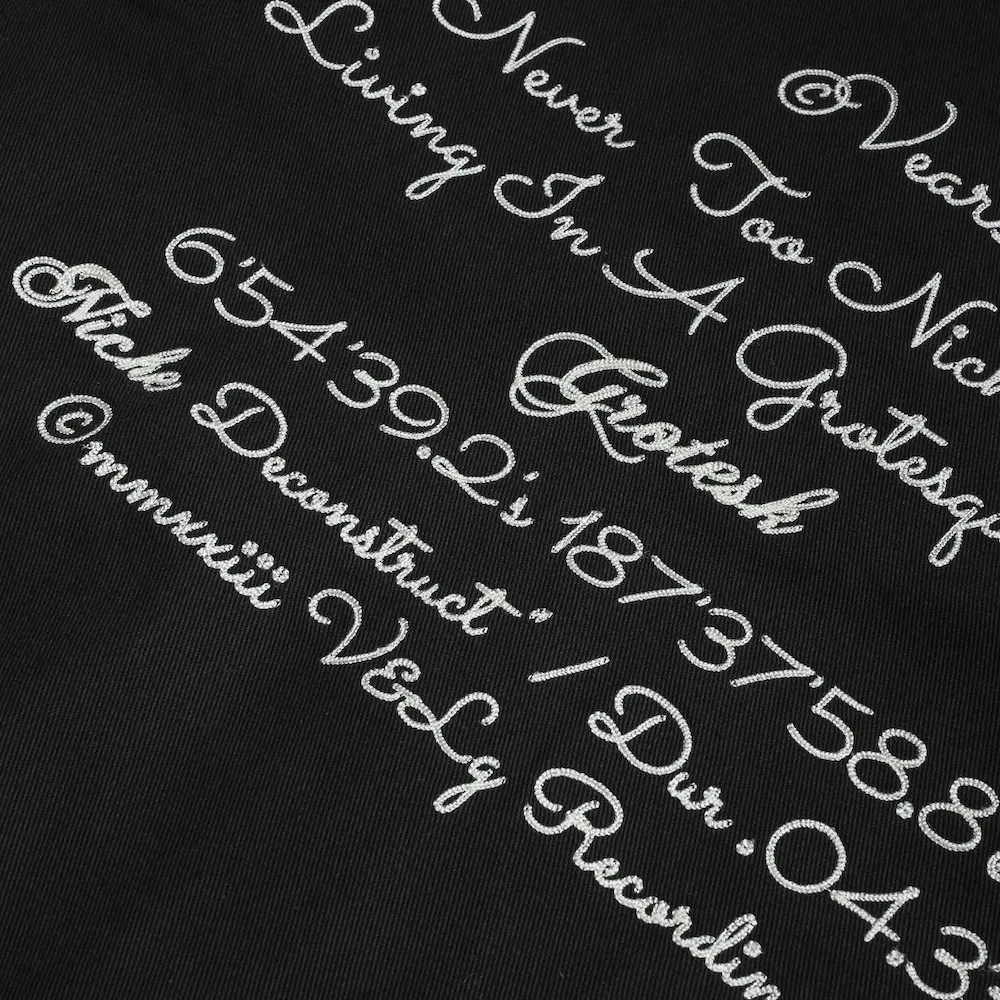 ©Vears
Never Too Nich
Living In A Grotesqu
Grotesk
6'54'39.2's 187'37'58.8
Niche Deconstruct" / Dur. 04.3
©mmxxiii VELg Recordin